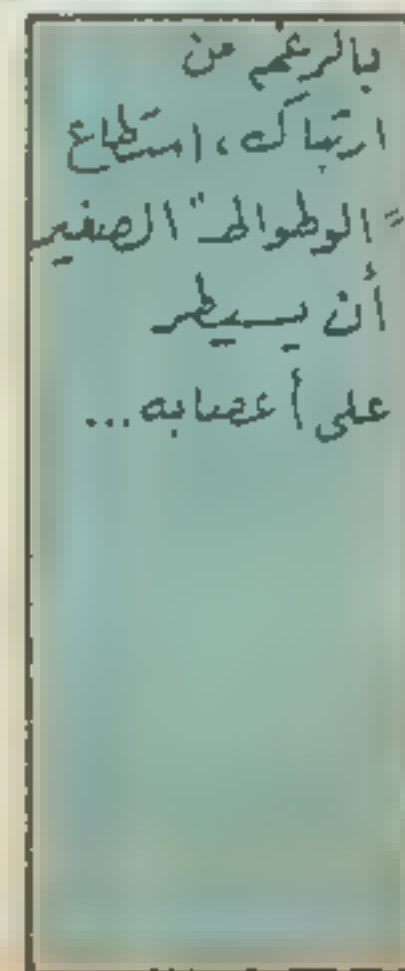 بالرغم من
ارتباك، استطاع
"الوطواط" الصغير
أن يسيطر
على أعصابه...